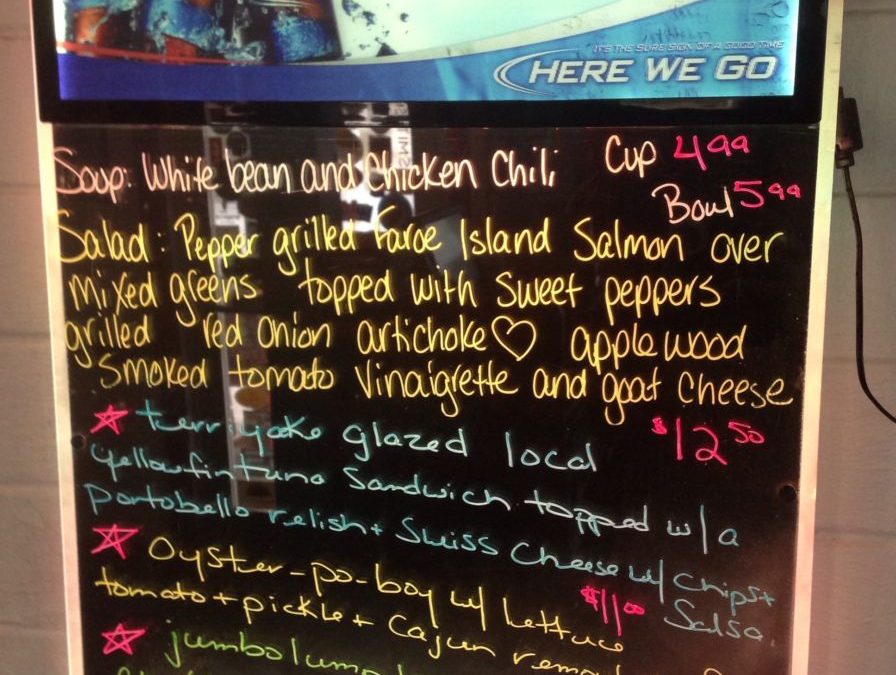 IT'S THE SURE SIGN OF A GOOD TIME
HERE WE GO
Soup: White bean and Chicken Chili Cup 4 99
Bowl 5 99
Salad: Pepper grilled Faroe Island Salmon over
mixed greens topped with sweet peppers
grilled red onion artichoke♡ applewood
Smoked tomato Vinaigrette and goat cheese
$12 50
☆ terriyake glazed local
yellowfin tuna Sandwich topped w/ a
portobello relish + Swiss Cheese w/ chips +
Salsa
$11 00
☆ Oyster-po-boy w/ lettuce
tomato + pickle + Cajun
☆ jumbo lump